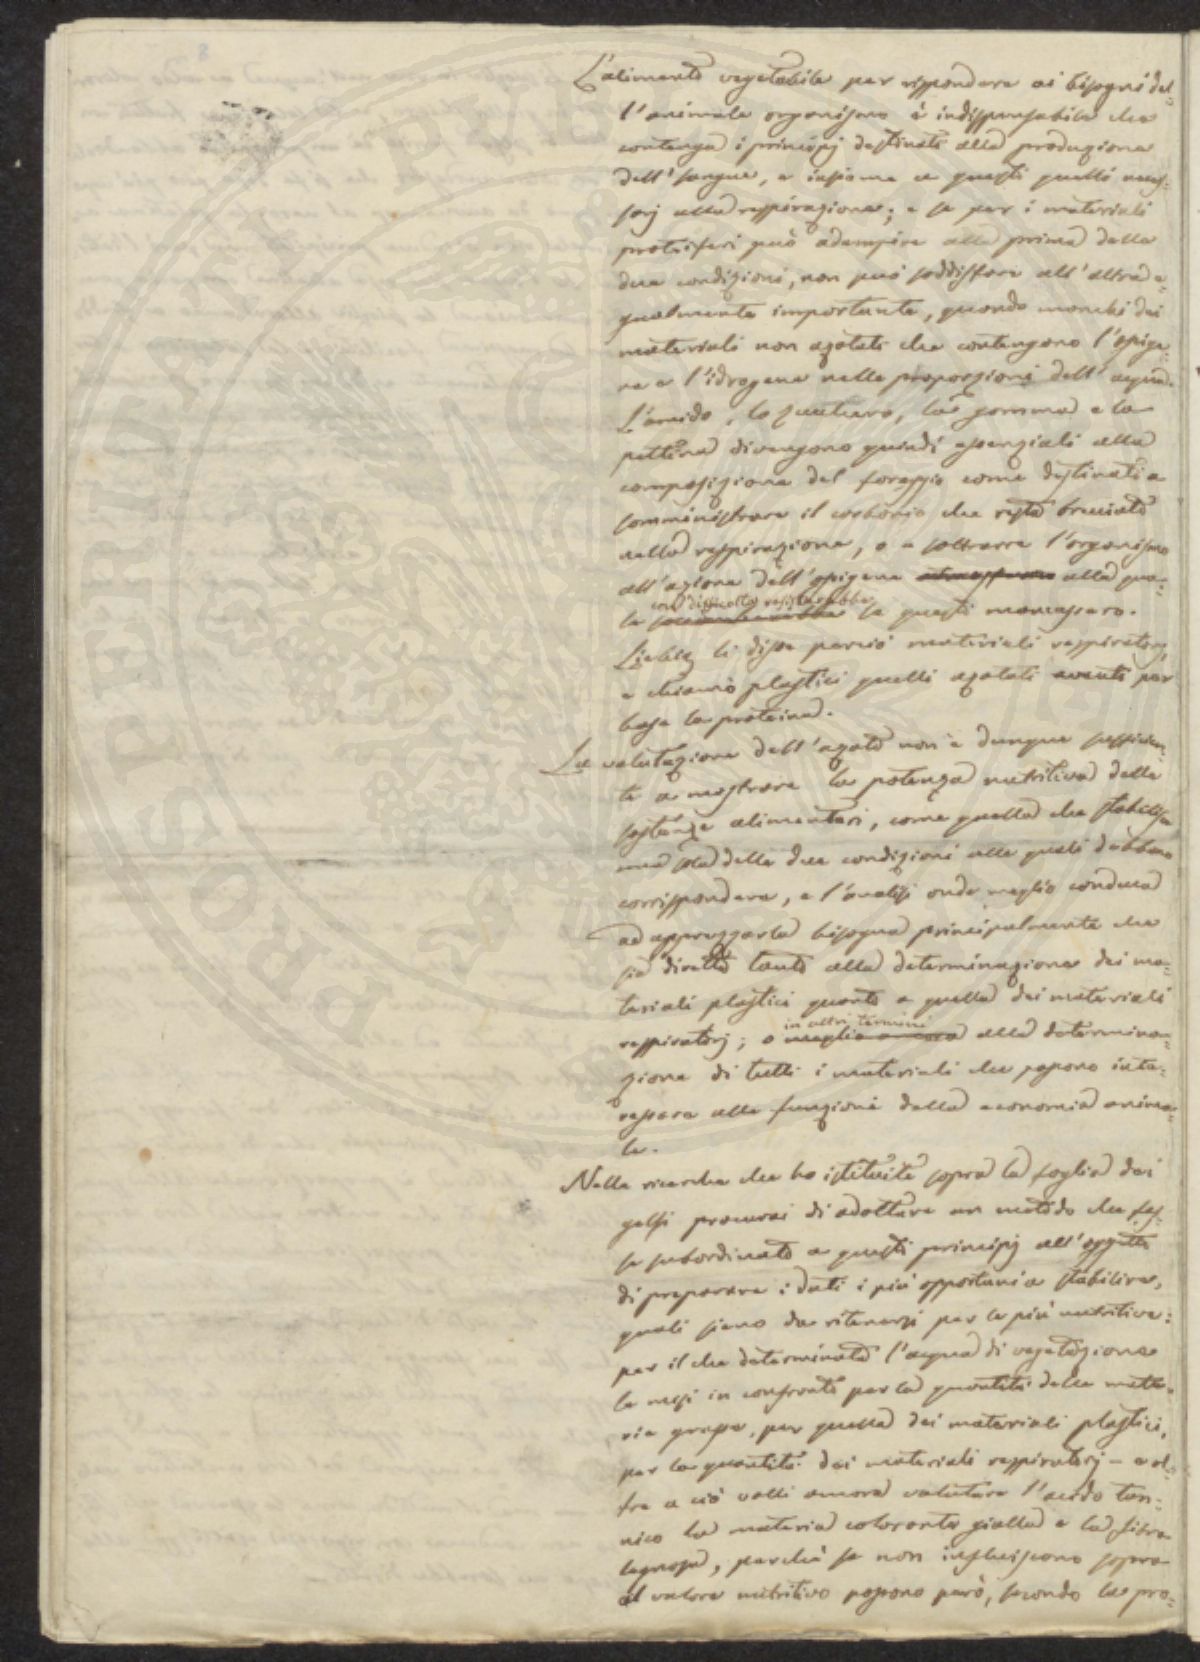 8
L'alimento vegetabile per rispondere ai bisogni del-
l'animale organismo è indispensabile che
contenga i principj destinati alla produzione
dell'sangue, e insieme a questi quelli neces-
sarj alla respirazione; e se per i materiali
proteiferi può adempire alla prima delle
due condizioni, non può soddisfare all'altra e-
gualmente importante, quando manchi dei
materiali non azotati che contengono l'ossige-
no e l'idrogene nelle proporzioni dell'acqua.
L'amido, lo zucchero, la gomma e la
pettina divengono quindi essenziali alla
composizione del foraggio come destinati a
somministrare il carbonio che resta bruciato
nella respirazione, o a sottrarre l'organismo
all'azione dell'ossigene atmosferico alla qua-
con difficoltà resisterebbe
le soccomberebbe se questi mancassero.
Liebig li disse perciò materiali respiratorj,
e chiamò plastici quelli azotati aventi per
base la proteina.
La valutazione dell'azoto non è dunque sufficien-
te a mostrare la potenza nutritiva delle
sostanze alimentari, come quella che stabilisce
una sola delle due condizioni alle quali debbono
corrispondere, e l'analisi onde meglio conduca
ad apprezzarla bisogna principalmente che
sia diretta tanto alla determinazione dei ma-
teriali plastici quanto a quella dei materiali
in altri termini
respiratorj; o meglio ancora alla determina-
zione di tutti i materiali che possono inte-
ressare alle funzioni della economia anima-
le.
Nelle ricerche che ho istituite sopra la foglia dei
gelsi procurai di adottare un metodo che fos-
se subordinato a questi principj all'oggetto
di preparare i dati i più opportuni a stabilire,
quali siano da ritenersi per le più nutritive:
per il che determinata l'acqua di vegetazione
le misi in confronto per la quantità della mate-
ria grassa, per quella dei materiali plastici,
per la quantità dei materiali respiratorj – e ol-
tre a ciò volli ancora valutare l'acido tan-
nico la materia colorante gialla e la fibra
legnosa, perchè se non influiscono sopra
al valore nutritivo possono però, secondo la pro-